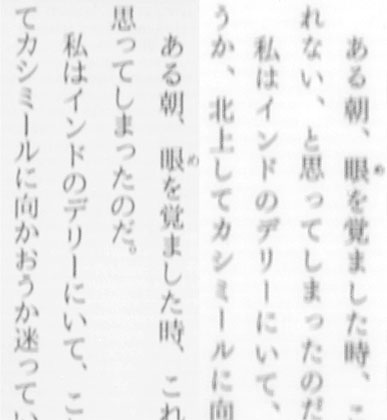 ある朝、眼を覚ました時、こ
れない、と思ってしまったのだ
私はインドのデリーにいて、
うか、北上してカシミールに向
ある朝、眼を覚ました時、これ
思ってしまったのだ。
私はインドのデリーにいて、こ
てカシミールに向かおうか迷ってい